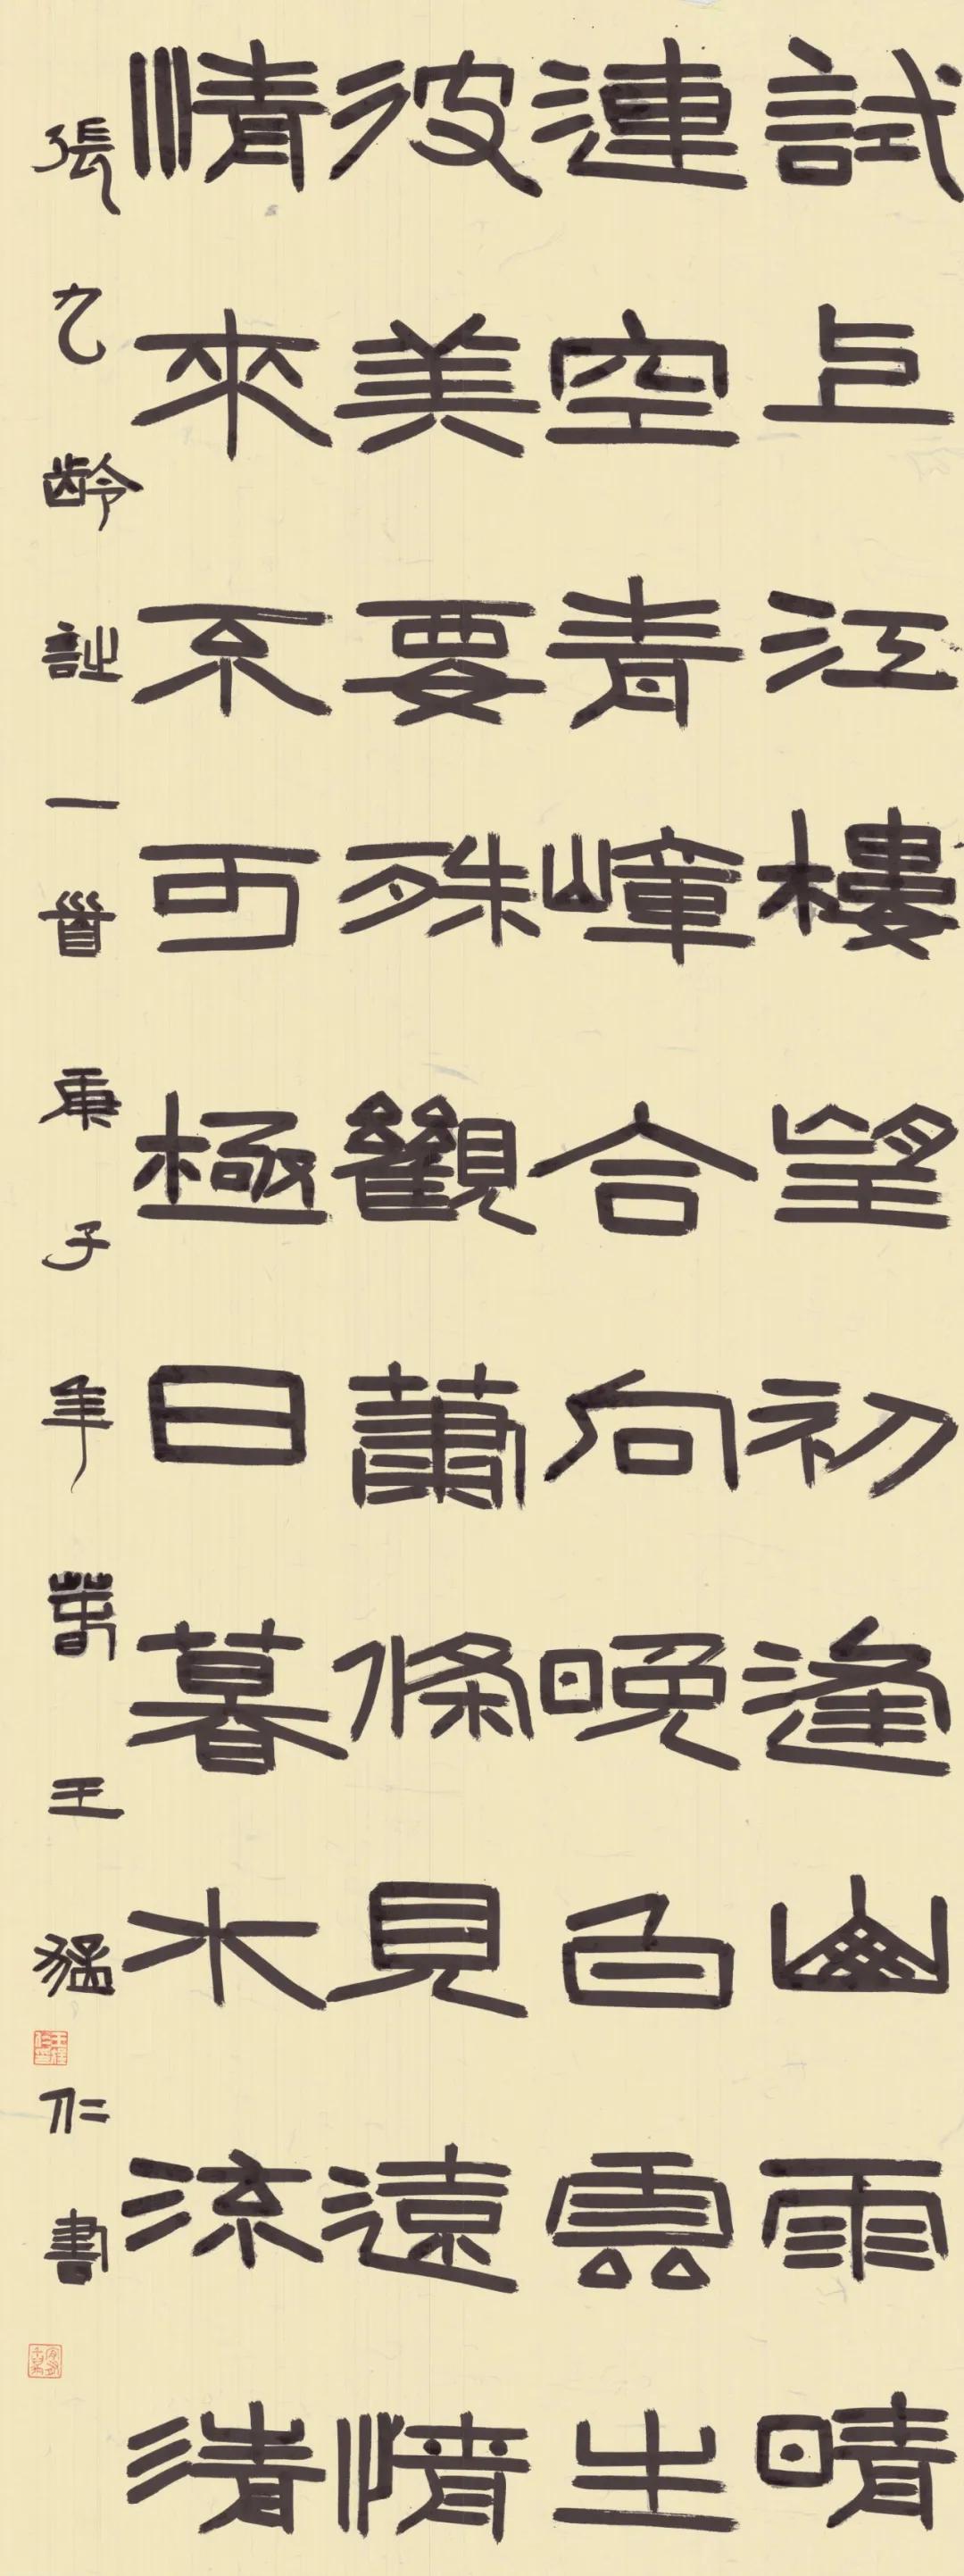 試上江樓望初逢山雨晴
連空青嶂合向晚白雲生
彼美要殊觀蕭條見遠情
情來不可極日暮水流清
張九齡詩一首庚子年春王猛仁書